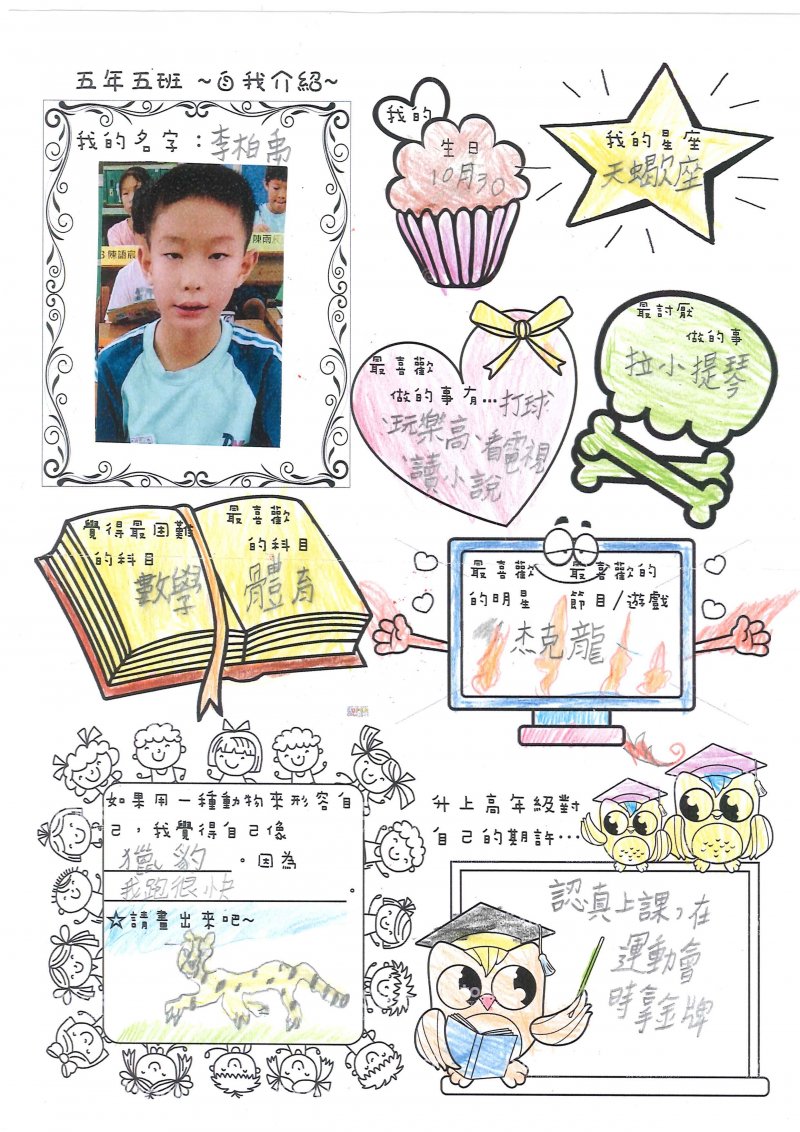 五年五班 ~自我介紹~
我的名字：李柏禹
陳語宸
陳雨
我的
生日
10月30
我的星座
天蠍座
最喜歡
做的事有…打球
、玩樂高、看電視
、讀小說
最討厭
做的事
拉小提琴
覺得最困難
的科目
數學
最喜歡
的科目
體育
最喜歡
的明星
最喜歡的
節目/遊戲
杰克龍
如果用一種動物來形容自
己，我覺得自己像
獵豹。因為
我跑很快。
☆請畫出來吧~
升上高年級對
自己的期許…
認真上課，在
運動會
時拿金牌